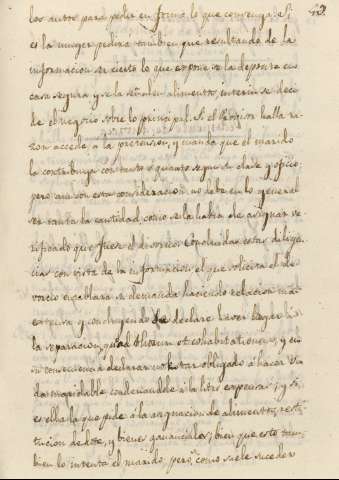 49.
los autos para pedir en forma lo que convenga. Si
es la muger pedirá tambien que resultando de la
informacion ser cierto lo que expone se la deposite en
casa segura y se la señalen alimentos, interin se deci-
de el negocio sobre lo principal. Si el Provisor halla ra-
zon accede á la pretension, y manda que el marido
la contribuya con tanto ó quanto segun su clase y oficio,
pero aun con esta consideracion no debe en lo general
ser tanta la cantidad como se la habia de asignar ve-
rificado que fuese el divorcio. Concluidas estas diligen-
cias con vista de la informacion el que solicita el di-
vorcio entablara su demanda haciendo relacion mas
extensa, y concluyendo se declare haver lugar á
la separacion quoad thorum et cohabitationem, y en
su consecuencia declarar no estar obligado á hacer vi-
da maridable condenandole á la litis expensas; y si
es ella la que pide á la asignacion de alimentos, resti-
tucion de dote, y bienes gananciales; bien que esto tam-
bien lo intenta el marido, pero como suele suceder